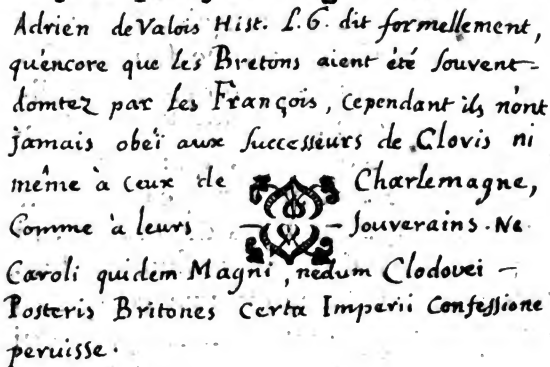 Adrien de Valois Hist. L. 6. dit formellement,
qu'encore que les Bretons aient été souvent
domtez par les François, cependant ils n'ont
jamais obeï aux successeurs de Clovis ni
même à ceux de Charlemagne,
Comme à leurs – souverains. Ne
Caroli quidem Magni, nedum Clodovei –
Posteris Britones certa Imperii Confessione
peruisse.